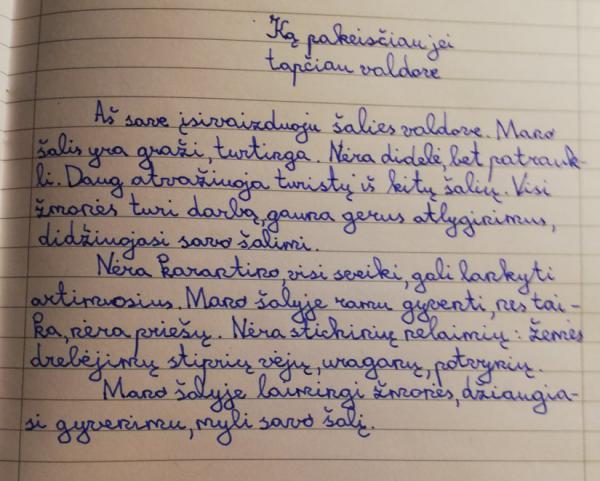 Ką pakeisčiau jei
tapčiau valdove
Aš save įsivaizduoju šalies valdove. Mano
šalis yra graži, turtinga. Nėra didelė, bet patrauk-
li. Daug atvažiuoja turistų iš kitų šalių. Visi
žmonės turi darbą, gauna gerus atlyginimus,
didžiuojasi savo šalimi.
Nėra karantino, visi sveiki, gali lankyti
artimuosius. Mano šalyje ramu gyventi, nes tai-
ka, nėra priešų. Nėra stichinių nelaimių: žemės
drebėjimų stiprių vėjų, uraganų, potvynių.
Mano šalyje laimingi žmonės, džiaugia-
si gyvenimu, myli savo šalį.